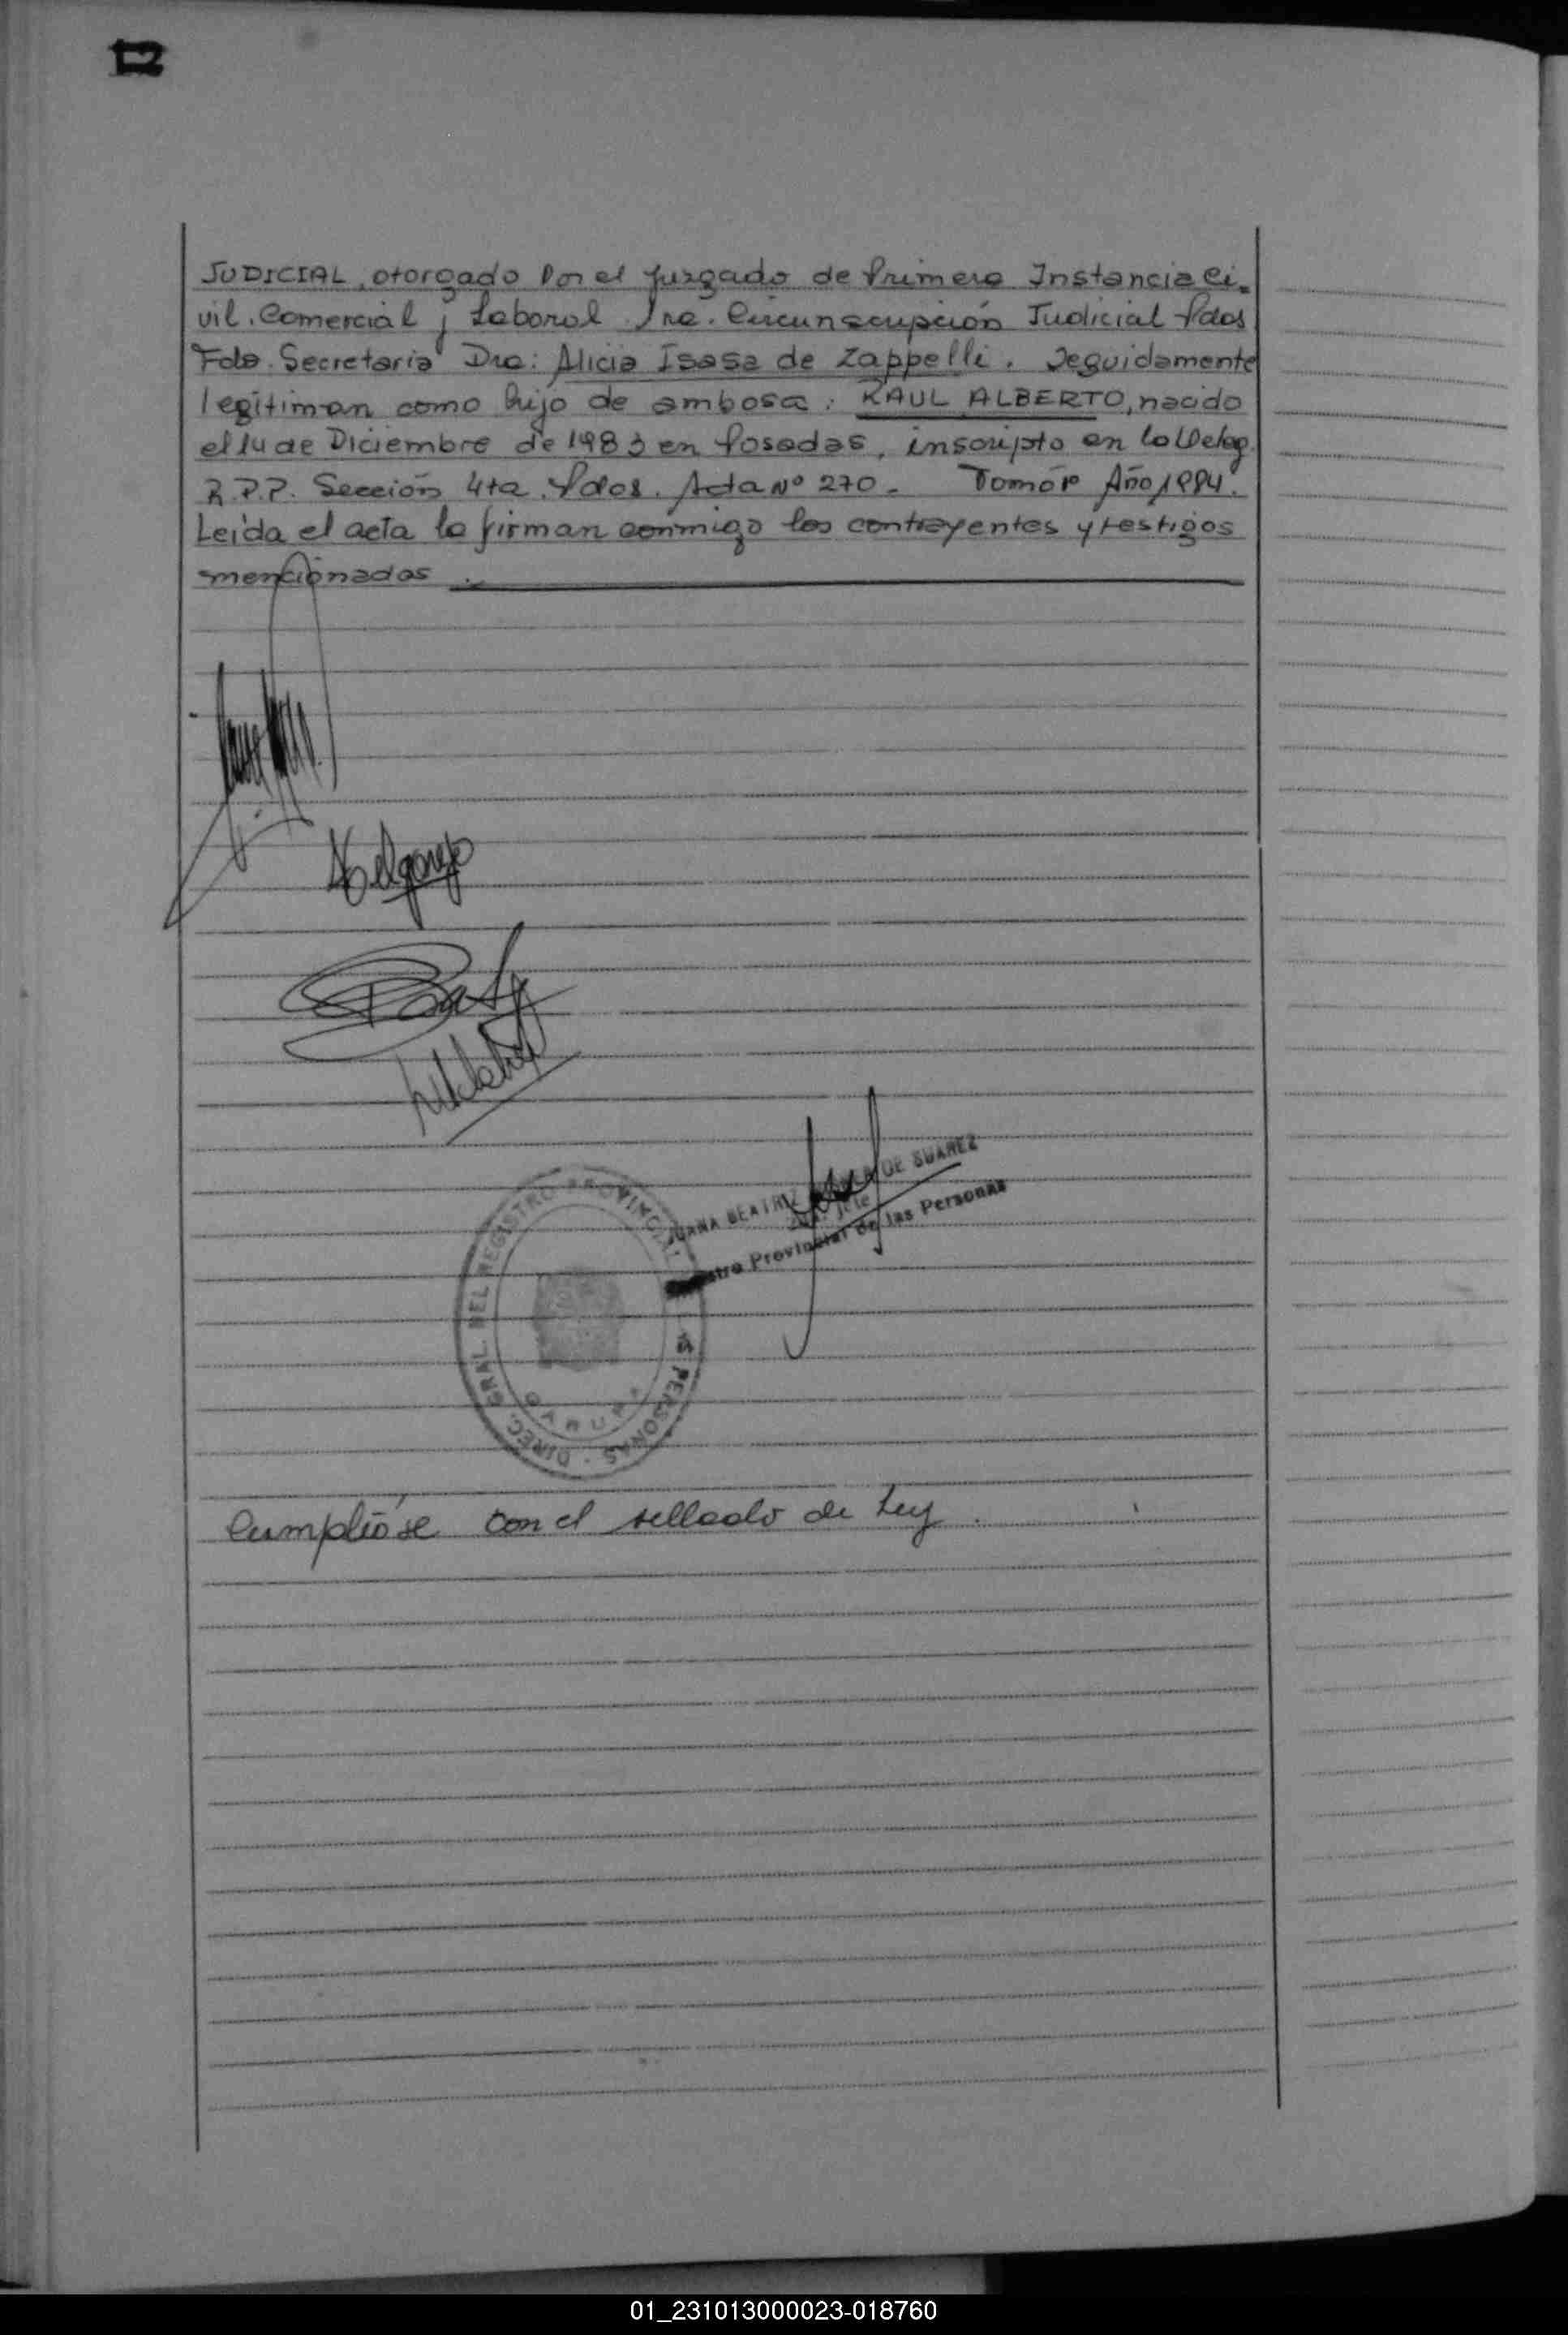 JUDICIAL, otorgado Por el Juzgado de Primera Instancia Ci-
vil. Comercial y Laboral 1ra. Circunscripción Judicial Pdas
Fdo. Secretaria Dra: Alicia Isasa de Zappelli. Seguidamente
legitiman como hijo de ambosa: RAUL ALBERTO, nacido
el 14 de Diciembre de 1983 en Posadas, inscripto en la Deleg.
R.P.P. Sección 4ta. Pdas. Acta Nº 270- Tomo Año 1984.
Leída el acta la firman conmigo los contrayentes y testigos
mencionados.
JUANA BEATRIZ DE SUAREZ
Jefe
Provincial de las Personas
DIREC. GRAL. DEL REGISTRO PROVINCIAL PERSONAS
Cumplióse con el sellado de Ley.
01_231013000023-018760